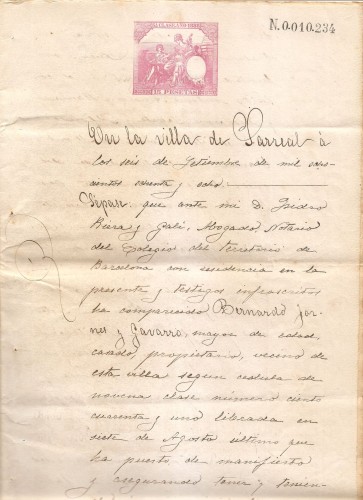 N.0.010.234
15 PESETAS
En la villa de Sarreal á
los seis de Setiembre de mil ocho-
cientos ochenta y ocho.
Sépan: que ante mi D. Isidro
Riera y Galí, Abogado, Notario
del Colegio del territorio de
Barcelona con residencia en la
presente y testigos infrascritos
ha comparecido Bernardo Jor-
net y Gavarró, mayor de edad,
casado, propietario, vecino de
esta villa segun cedula de
novena clase número ciento
cuarenta y uno librada en
siete de Agosto último que
ha puesto de manifiesto
y asegurando tener y tenien-